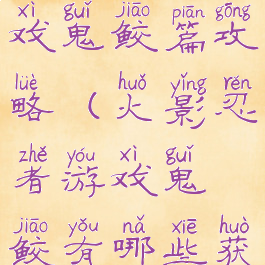 xì guǐ jiāo piān gōng
戏鬼鲛篇攻
lüè huǒ yǐng rěn
略(火影忍
zhě yóu xì guǐ
者游戏鬼
jiāo yǒu nǎ xiē huò
鲛有哪些获